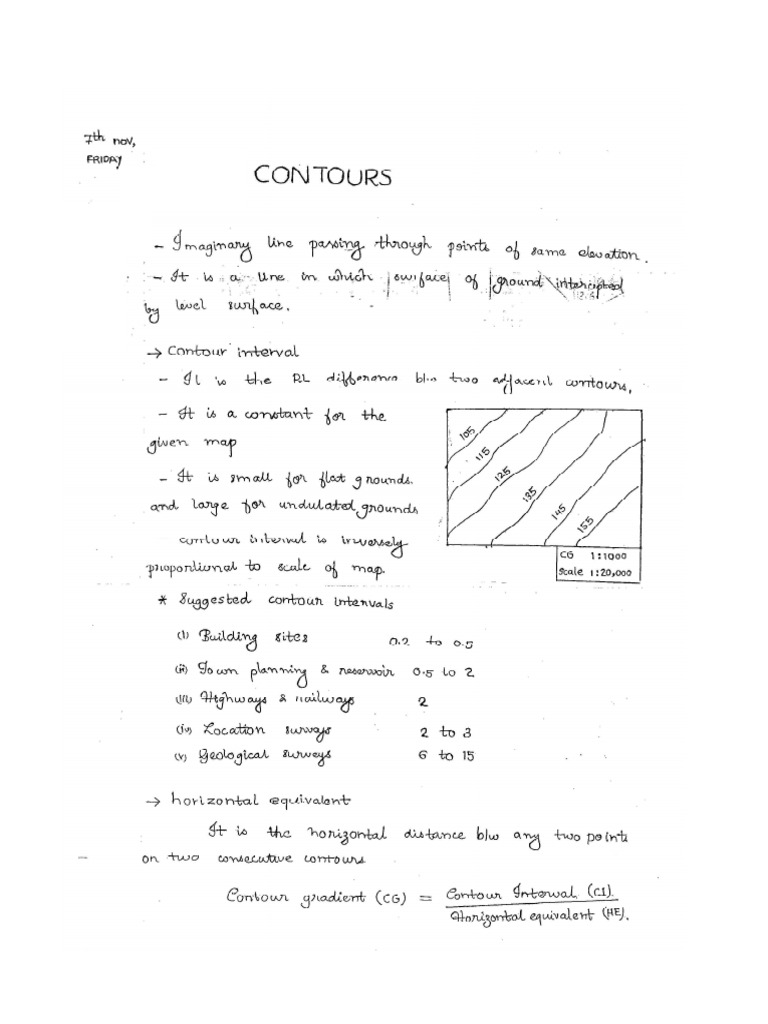 7th nov,
FRIDAY
CONTOURS
- Imaginary line passing through points of same elevation.
- It is a line in which surface of ground intercepted
by level surface.
→ Contour interval
- It is the RL difference b/w two adjacent contours.
- It is a constant for the
given map
- It is small for flat grounds.
and large for undulated grounds
contour interval is inversely
proportional to scale of map.
105
115
125
135
145
155
CG 1:1000
Scale 1:20,000
* Suggested contour intervals
(i) Building sites 0.2 to 0.5
(ii) Town planning & reservoir 0.5 to 2
(iii) Highways & railways 2
(iv) Location surveys 2 to 3
(v) Geological surveys 6 to 15
→ horizontal equivalent
It is the horizontal distance b/w any two points
on two consecutive contours
Contour gradient (CG) = Contour Interval (CI).
Horizontal equivalent (HE).